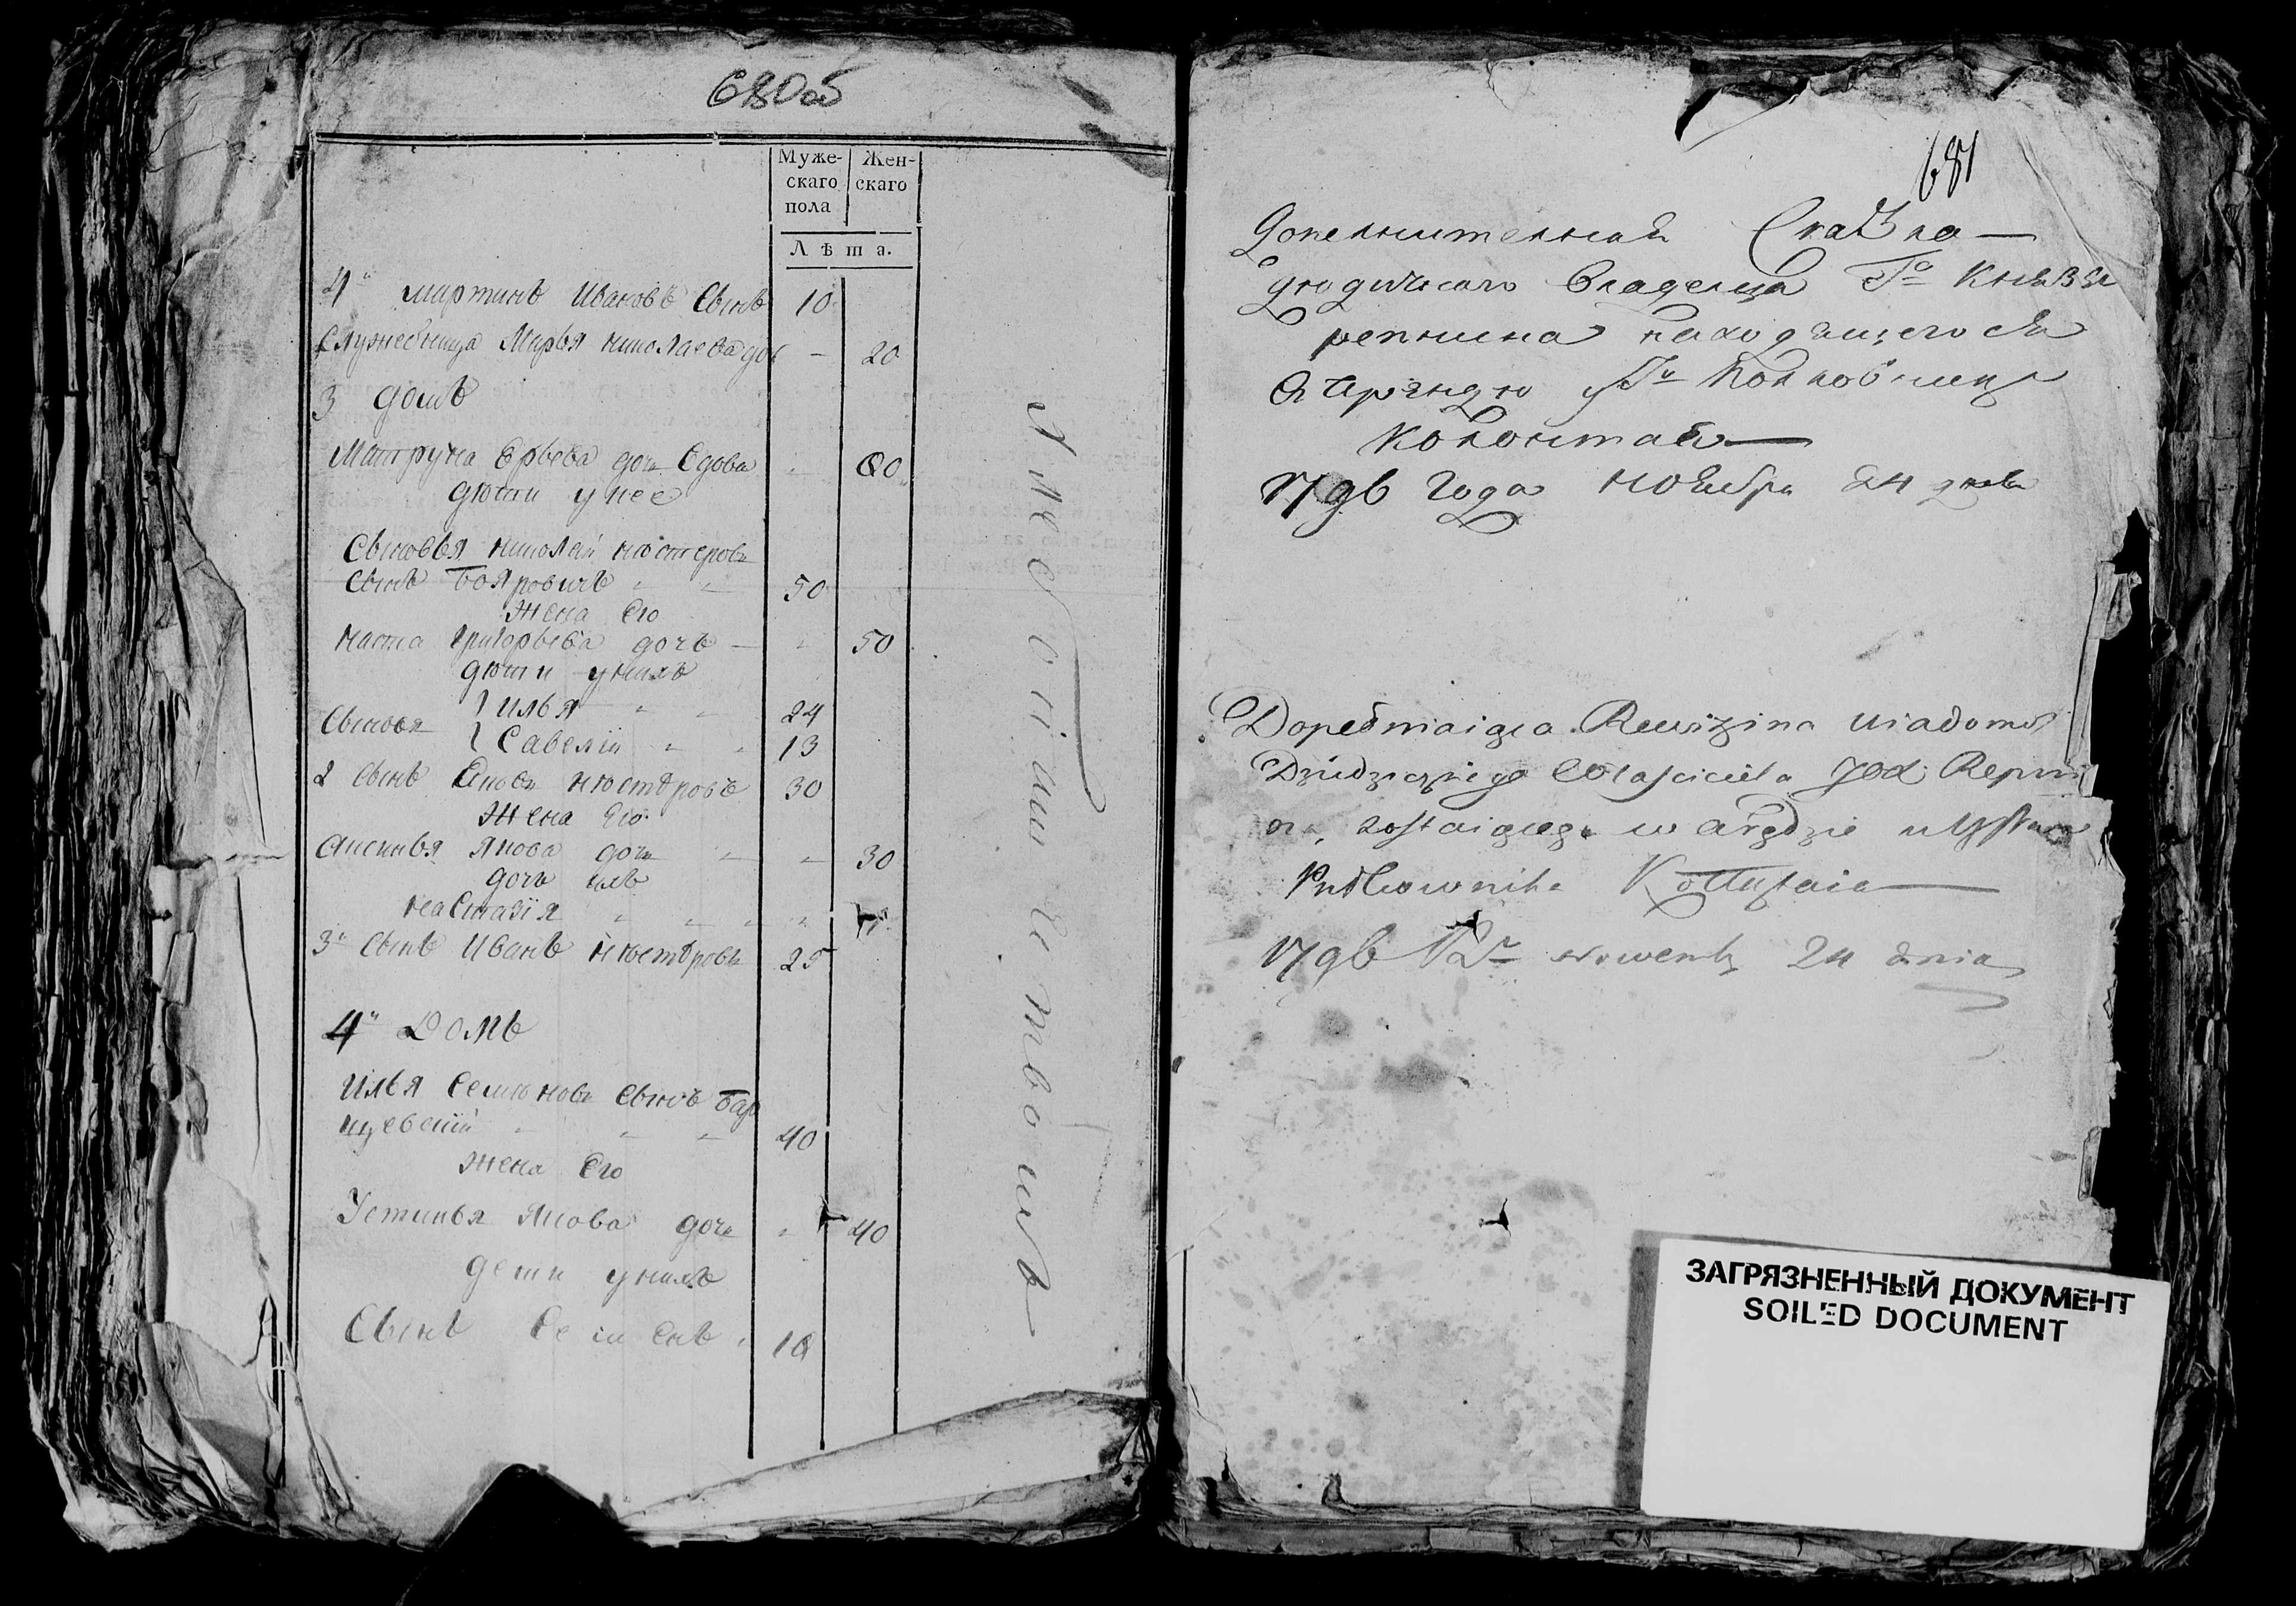 680об
Муже-
скаго
пола
Жен-
скаго
Лѣта.
4й мартинъ Ивановъ Сынъ 10
служебница Марья николаева доч - 20
3 домъ
Матруна Юрьева дочь Вдова 80
дюти у нее
Сыновья николай нюстеровъ
Сынъ Бояровичъ 50
Жена Его
Наста Григорьева дочъ 50
дюти унихъ
Сыновя Илья 24
Савелiй 13
2 Сынъ нюстеровъ 30
Жена Его
Аксинья Якова дочь 30
дочь ихъ
неастазiя
3й Сынъ Иванъ нюстеровъ 25
4й Домъ
Илья Семюновъ Сынъ Бар
щевскiй 40
Жена Его
Устинья Якова дочь 40
дети унихъ
Сынъ Семенъ
681
Дополнительная Сказка
дюдичнаго владельца Го Князя
репнина находящегося
в Арендю у Гн Полковника
Колонтая
179в года ноября 24 дня
Rewizina wiadomoś
Dziedzicznego Własciciela Repni
na, zostaiącego w Arędzie u
Pułkownika Kołłątaia
179в Rг nowemb 24 dnia
ЗАГРЯЗНЕННЫЙ ДОКУМЕНТ
SOILED DOCUMENT